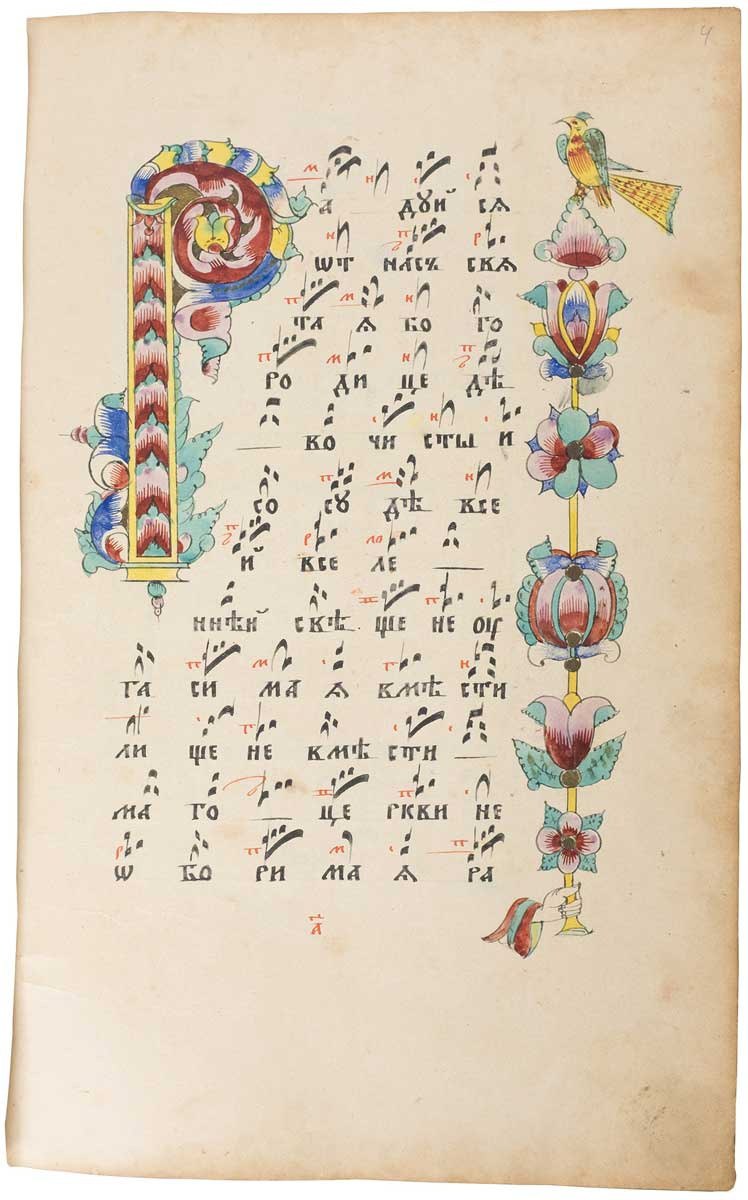 4
Р а дуй ся
ѿт насъ свѧ
та ѧ бо го
ро ди це дѣ
во чи сты и
со су дѣ все
й все ле
ннѣй свѣ ще не оу
га си ма ѧ вмѣ сти
ли ще не вмѣ сти
ма го це ркви не
ѡ бо ри ма ѧ ра